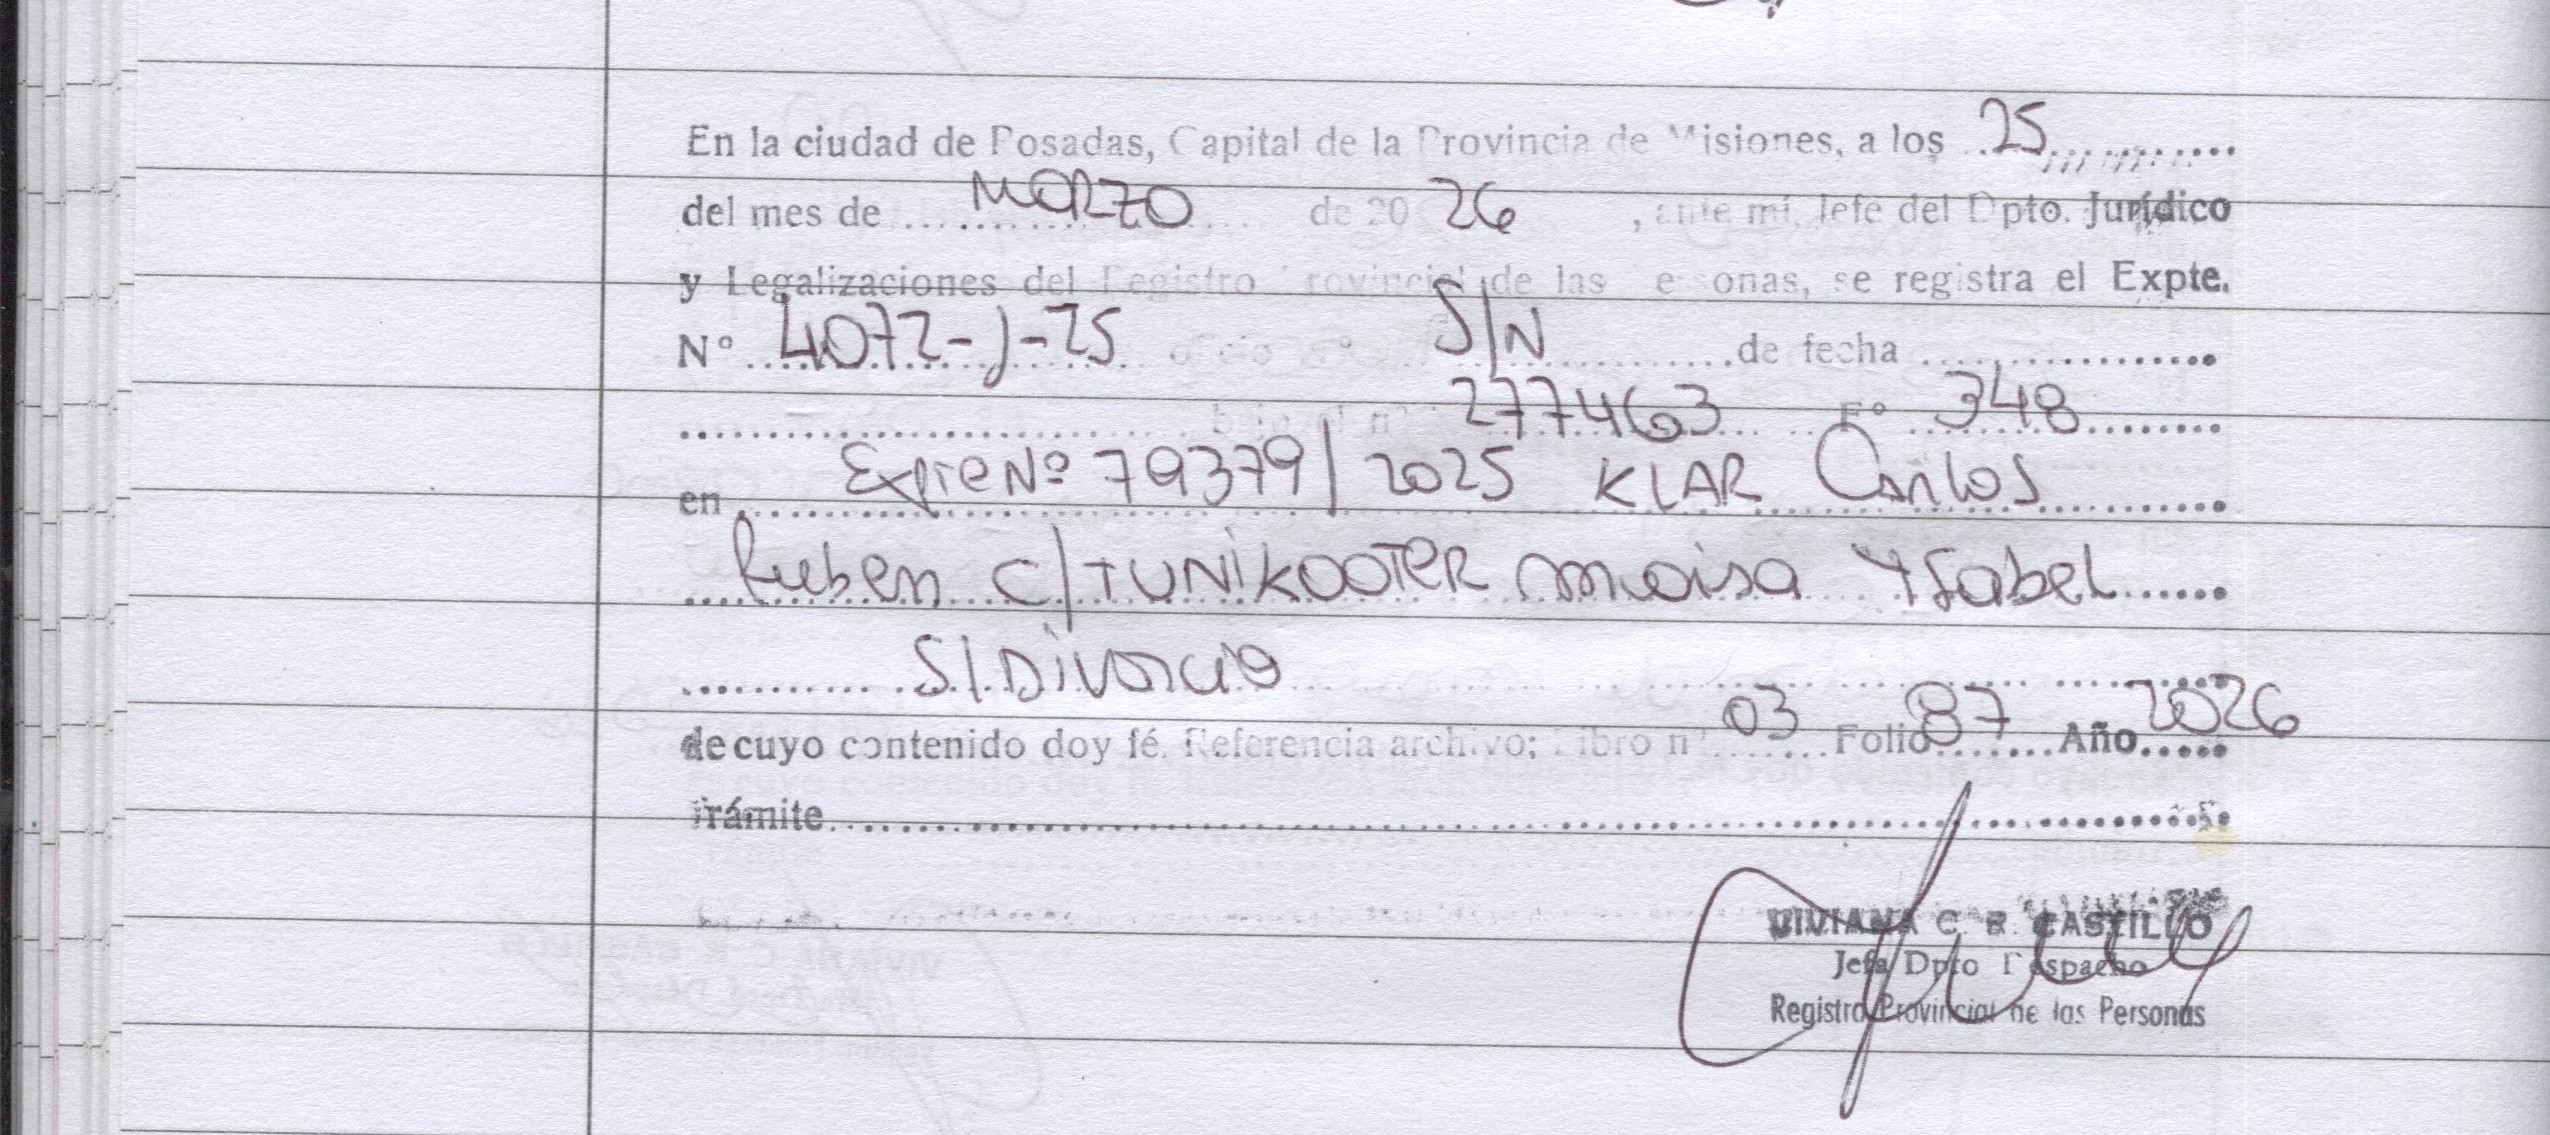 En la ciudad de Posadas, Capital de la Provincia de Misiones, a los 25
del mes de MARZO de 20 26, ante mí, Jefe del Dpto. Jurídico
y Legalizaciones del Registro Provincial de las Personas, se registra el Expte.
Nº 4072-J-25 oficio Nº S/N de fecha
bajo el nº 277463 Fº 348
en Expte Nº 79379/2025 KLAR Carlos
Ruben C/TUNIKOOTER Maisa Ysabel
S/Divorcio
de cuyo contenido doy fé. Referencia archivo; Libro nº 03 Folio 87 Año 2026
Trámite
VIVIANA C. R. CASTILLO
Jefa Dpto Despacho
Registro Provincial de las Personas